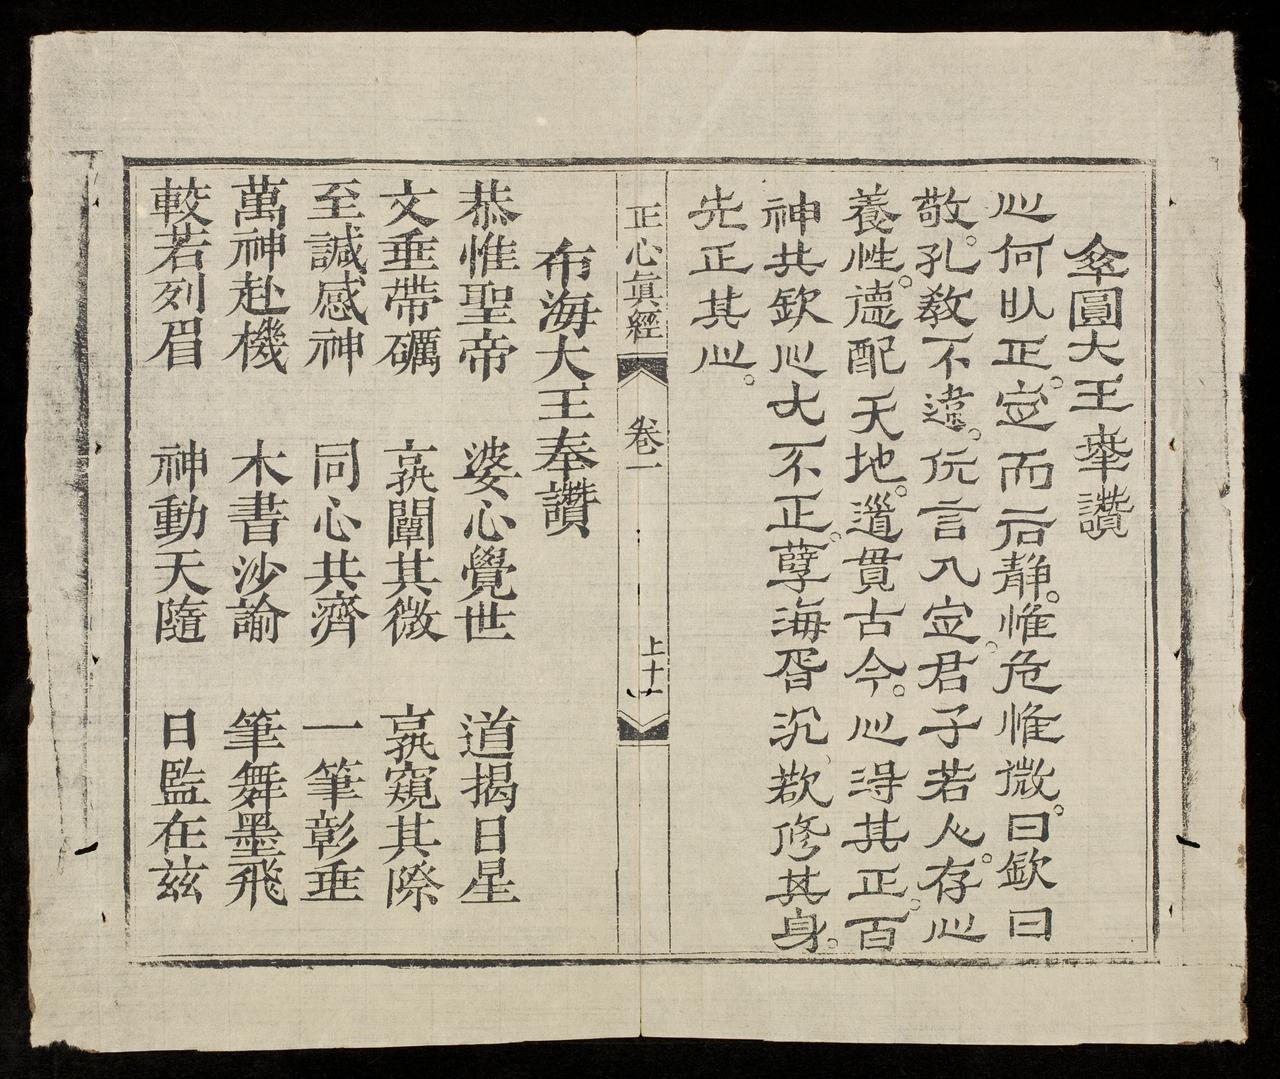 傘圓大王奉讚
心何以正。定而后静。惟危惟微。曰欽曰
敬。孔教不違。佅言入定。君子若人。存心
養性。德配天地。道貫古今。心得其正。百
神共欽。心大不正。孽海胥沉。欲修其身。
先正其心。
正心眞經
卷一
上十一
布海大王奉讚
恭惟聖帝 婆心覺世 道揭日星
文垂帶礪 孰闡其微 孰窺其際
至誠感神 同心共濟 一筆彰垂
萬神赴機 木書沙諭 筆舞墨飛
較若列眉 神動天隨 日監在兹